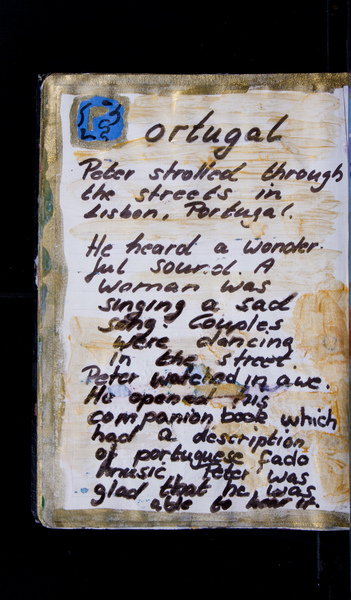 Portugal
Peter strolled through
the streets in
Lisbon, Portugal.
He heard a wonder-
ful sound. A
woman was
singing a sad
song. Couples
were dancing
in the street.
Peter watched in awe.
He opened his
companion book which
had a description
of portuguese fado
music. Peter was
glad that he was
able to hear it.